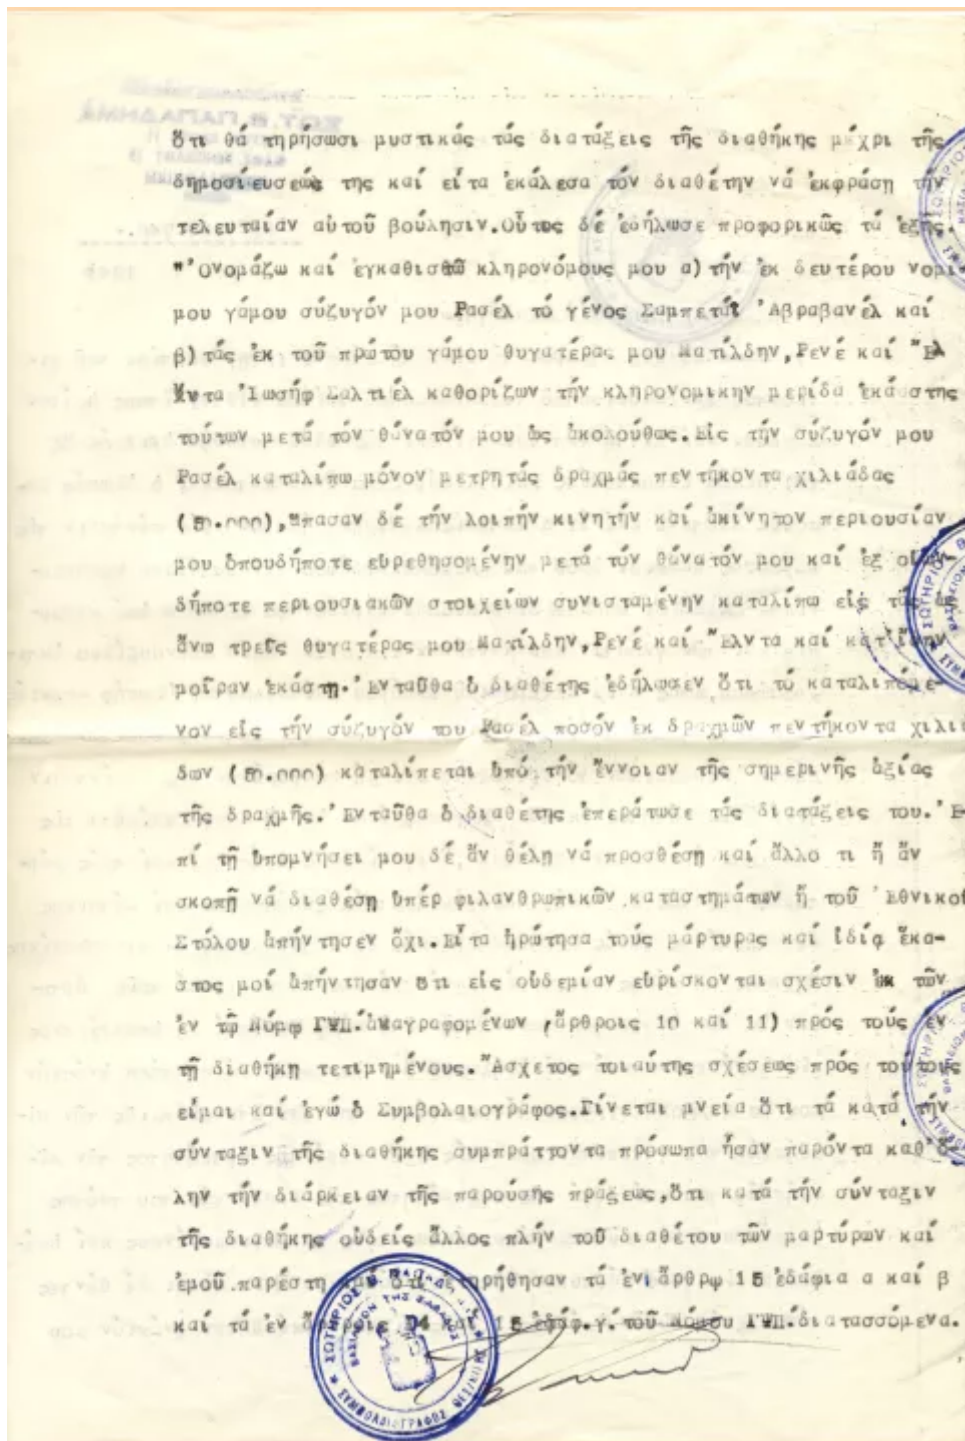 ὅτι θά τηρήσωσι μυστικάς τάς διατάξεις τῆς διαθήκης μέχρι τῆς
δημοσιεύσεώς της καί εἶτα ἐκάλεσα τόν διαθέτην νά ἐκφράσῃ τήν
τελευταίαν αὐτοῦ βούλησιν.Οὗτος δέ ἐδήλωσε προφορικῶς τά ἑξῆς.
"Ὀνομάζω καί ἐγκαθιστῶ κληρονόμους μου α)τήν ἐκ δευτέρου νομί-
μου γάμου σύζυγόν μου Ρασέλ τό γένος Σαμπετάϊ Ἀβραβανέλ καί
β)τάς ἐκ τοῦ πρώτου γάμου θυγατέρας μου Ματίλδην,Ρενέ καί Ἔλ
ντα Ἰωσήφ Σαλτιέλ καθορίζων τήν κληρονομικην μερίδα ἑκάστης
τούτων μετά τόν θάνατόν μου ὡς ἀκολούθως.Εἰς τήν σύζυγόν μου
Ρασέλ καταλίπω μόνον μετρητάς δραχμάς πεντήκοντα χιλιάδας
(50.000),ἅπασαν δέ τήν λοιπήν κινητήν καί ἀκίνητον περιουσίαν
μου ὁπουδήποτε εὑρεθησομένην μετά τόν θάνατόν μου καί ἐξ οἱων-
δήποτε περιουσιακῶν στοιχείων συνισταμένην καταλίπω εἰς τάς
ἄνω τρεῖς θυγατέρας μου Ματίλδην,Ρενέ καί Ἔλντα καί κατ'ἴσην
μοῖραν ἑκάστῃ.Ἐνταῦθα ὁ διαθέτης ἐδήλωσεν ὅτι τό καταλιπόμε-
νον εἰς τήν σύζυγόν του Ρασέλ ποσόν ἐκ δραχμῶν πεντήκοντα χιλιά
δων (50.000) καταλίπεται ὑπό τήν ἔννοιαν τῆς σημερινῆς ἀξίας
τῆς δραχμῆς.Ἐνταῦθα ὁ διαθέτης ἐπεράτωσε τάς διατάξεις του.Ἐ-
πί τῇ ὑπομνήσει μου δέ ἄν θέλῃ νά προσθέσῃ καί ἄλλο τι ἤ ἄν
σκοπῇ νά διαθέσῃ ὑπέρ φιλανθρωπικῶν καταστημάτων ἤ τοῦ Ἐθνικοῦ
Στόλου ἀπήντησεν ὄχι.Εἶτα ἠρώτησα τούς μάρτυρας καί ἰδίᾳ ἕκα-
στος μοί ἀπήντησαν ὅτι εἰς οὐδεμίαν εὑρίσκονται σχέσιν ἐκ τῶν
ἐν τῷ Νόμῳ ΓΨΠ.ἀναγραφομένων ,ἄρθροις 10 καί 11) πρός τούς ἐν
τῇ διαθήκῃ τετιμημένους.Ἄσχετος τοιαύτης σχέσεως πρός τούτους
εἶμαι καί ἐγώ ὁ Συμβολαιογράφος.Γίνεται μνεία ὅτι τά κατά τήν
σύνταξιν τῆς διαθήκης συμπράττοντα πρόσωπα ἦσαν παρόντα καθ'ὅ-
λην τήν διάρκειαν τῆς παρούσης πράξεως,ὅτι κατά τήν σύνταξιν
τῆς διαθήκης οὐδείς ἄλλος πλήν τοῦ διαθέτου τῶν μαρτύρων καί
ἐμοῦ παρέστη καί ὅτι ἐτηρήθησαν τά ἐν ἄρθρῳ 15 ἐδάφια α καί β
καί τά ἐν ἄρθροις 14 καί 15 ἐδάφ.γ.τοῦ Νόμου ΓΨΠ.διατασσόμενα.